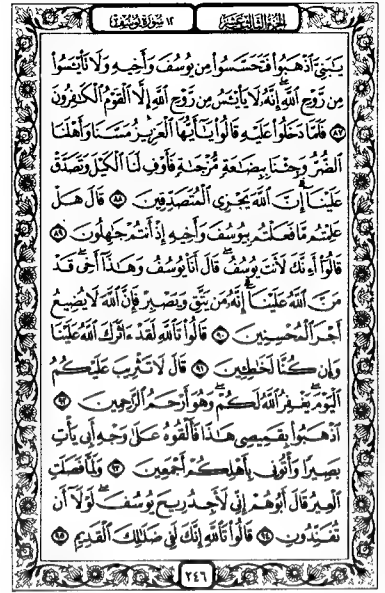 الجزء الثالث عشر ١٢ سورة يوسف
يَـٰبَنِىَّ ٱذۡهَبُواْ فَتَحَسَّسُواْ مِن يُوسُفَ وَأَخِيهِ وَلَا تَاْيۡـَٔسُواْ
مِن رَّوۡحِ ٱللَّهِۖ إِنَّهُۥ لَا يَاْيۡـَٔسُ مِن رَّوۡحِ ٱللَّهِ إِلَّا ٱلۡقَوۡمُ ٱلۡكَـٰفِرُونَ
٨٧ فَلَمَّا دَخَلُواْ عَلَيۡهِ قَالُواْ يَـٰٓأَيُّهَا ٱلۡعَزِيزُ مَسَّنَا وَأَهۡلَنَا
ٱلضُّرُّ وَجِئۡنَا بِبِضَـٰعَةٖ مُّزۡجَىٰةٖ فَأَوۡفِ لَنَا ٱلۡكَيۡلَ وَتَصَدَّقۡ
عَلَيۡنَآۖ إِنَّ ٱللَّهَ يَجۡزِى ٱلۡمُتَصَدِّقِينَ ٨٨ قَالَ هَلۡ
عَلِمۡتُم مَّا فَعَلۡتُم بِيُوسُفَ وَأَخِيهِ إِذۡ أَنتُمۡ جَـٰهِلُونَ ٨٩
قَالُوٓاْ أَءِنَّكَ لَأَنتَ يُوسُفُۖ قَالَ أَنَا۠ يُوسُفُ وَهَـٰذَآ أَخِىۖ قَدۡ
مَنَّ ٱللَّهُ عَلَيۡنَآۖ إِنَّهُۥ مَن يَتَّقِ وَيَصۡبِرۡ فَإِنَّ ٱللَّهَ لَا يُضِيعُ
أَجۡرَ ٱلۡمُحۡسِنِينَ ٩٠ قَالُواْ تَٱللَّهِ لَقَدۡ ءَاثَرَكَ ٱللَّهُ عَلَيۡنَا
وَإِن كُنَّا لَخَـٰطِـِٔينَ ٩١ قَالَ لَا تَثۡرِيبَ عَلَيۡكُمُ
ٱلۡيَوۡمَۖ يَغۡفِرُ ٱللَّهُ لَكُمۡۖ وَهُوَ أَرۡحَمُ ٱلرَّٰحِمِينَ ٩٢
ٱذۡهَبُواْ بِقَمِيصِى هَـٰذَا فَأَلۡقُوهُ عَلَىٰ وَجۡهِ أَبِى يَأۡتِ
بَصِيرٗا وَأۡتُونِى بِأَهۡلِكُمۡ أَجۡمَعِينَ ٩٣ وَلَمَّا فَصَلَتِ
ٱلۡعِيرُ قَالَ أَبُوهُمۡ إِنِّى لَأَجِدُ رِيحَ يُوسُفَۖ لَوۡلَآ أَن
تُفَنِّدُونِ ٩٤ قَالُواْ تَٱللَّهِ إِنَّكَ لَفِى ضَلَـٰلِكَ ٱلۡقَدِيمِ ٩٥
٢٤٦